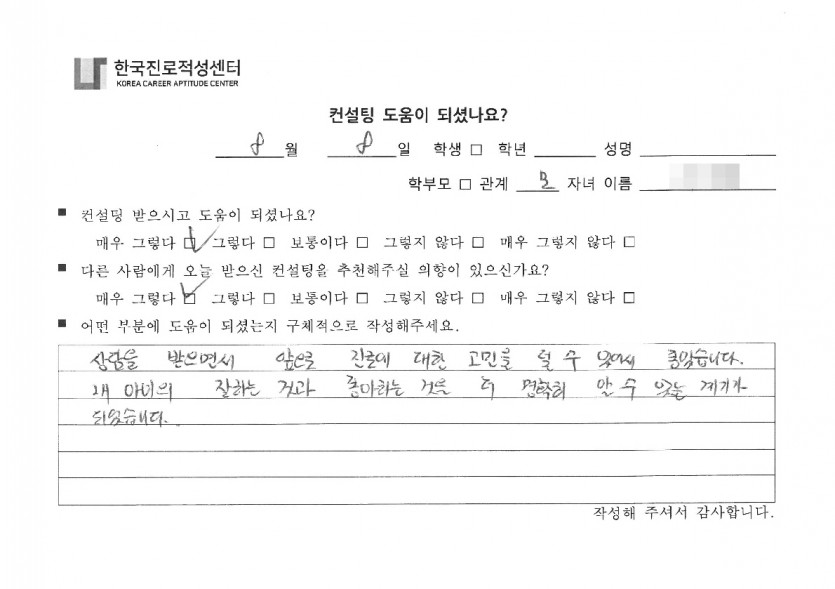 한국진로적성센터
KOREA CAREER APTITUDE CENTER
컨설팅 도움이 되셨나요?
8 월 8 일 학생 □ 학년 성명
학부모 □ 관계 모 자녀 이름
■ 컨설팅 받으시고 도움이 되셨나요?
매우 그렇다 ☑ 그렇다 □ 보통이다 □ 그렇지 않다 □ 매우 그렇지 않다 □
■ 다른 사람에게 오늘 받으신 컨설팅을 추천해주실 의향이 있으신가요?
매우 그렇다 ☑ 그렇다 □ 보통이다 □ 그렇지 않다 □ 매우 그렇지 않다 □
■ 어떤 부분에 도움이 되셨는지 구체적으로 작성해주세요.
상담을 받으면서 앞으로 진로에 대한 고민을 덜 수 있어서 좋았습니다.
내 아이의 잘하는 것과 좋아하는 것을 더 명확히 알 수 있는 계기가
되었습니다.
작성해 주셔서 감사합니다.